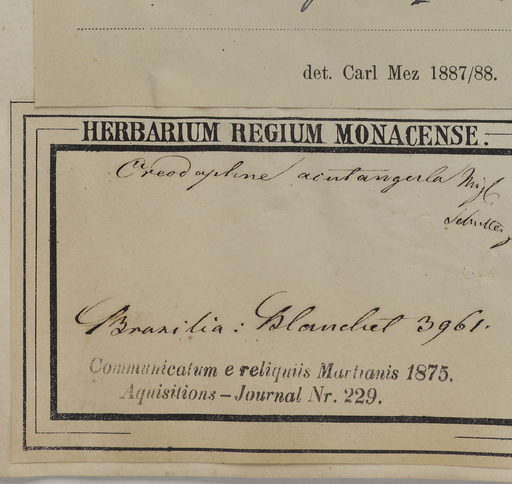 det. Carl Mez 1887/88.
HERBARIUM REGIUM MONACENSE.
Oreodaphne acutangula Miq
Brazilia: Blanchet 3961.
Communicatum e reliquiis Martianis 1875.
Aquisitions – Journal Nr. 229.